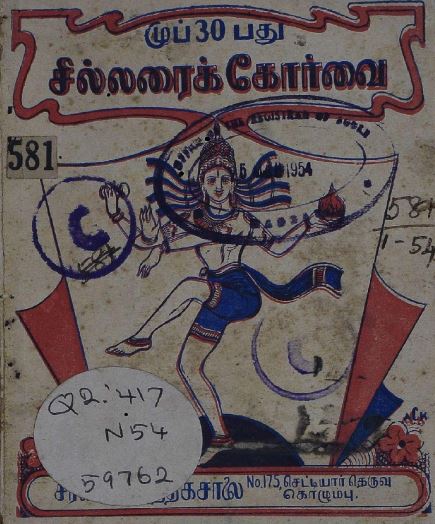 முப் 30 பது
சில்லரைக் கோர்வை
OFFICE OF THE REGISTRAR OF BOOKS
581
1954
C
581
1-54
C
Q2:417
N54
59762
ACK
No.175, செட்டியார் தெரு
கொழும்பு.